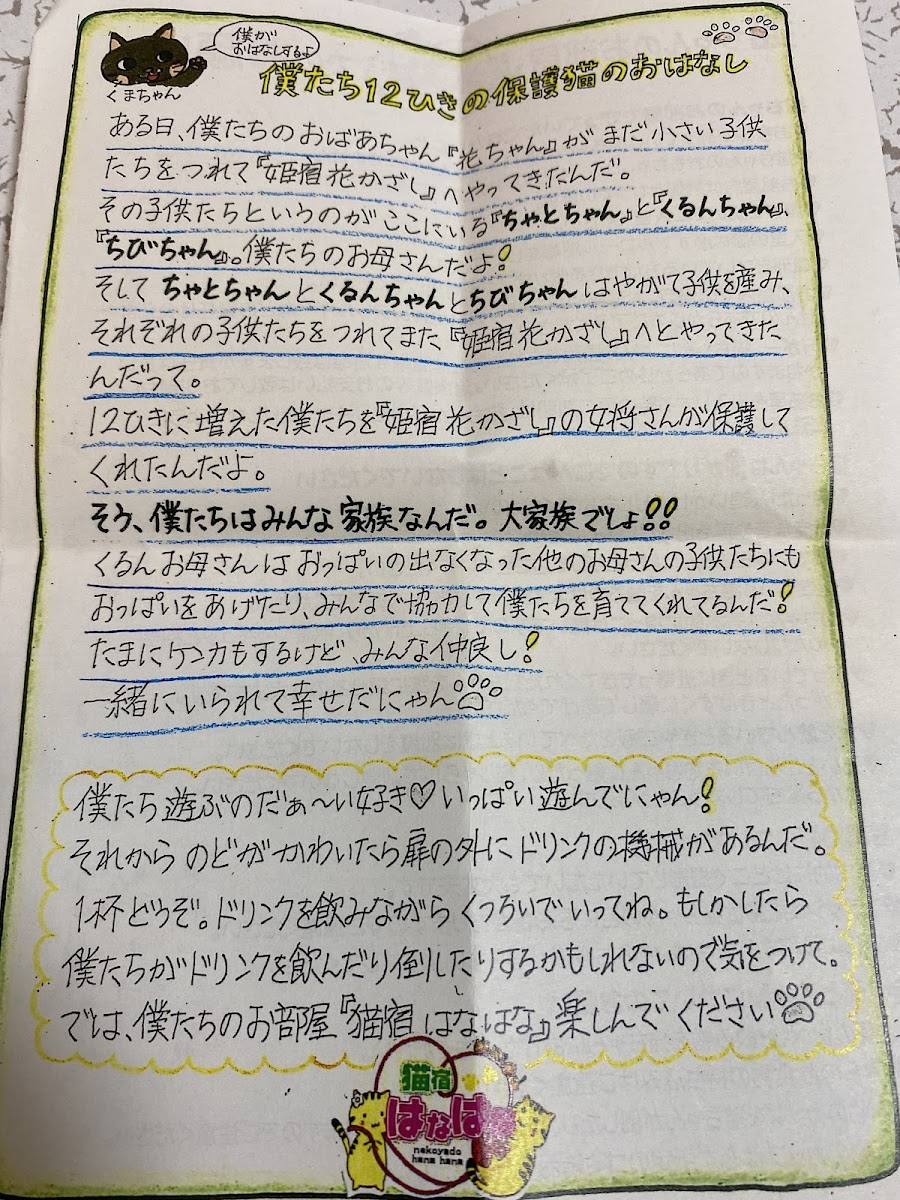 僕が
おはなしするよ
くまちゃん
僕たち12ひきの保護猫のおはなし
ある日、僕たちのおばあちゃん『花ちゃん』がまだ小さい子供
たちをつれて『姫宿花かざし』へやってきたんだ。
その子供たちというのがここにいる『ちゃとちゃん』と『くるんちゃん』、
『ちびちゃん』。僕たちのお母さんだよ!
そしてちゃとちゃんとくるんちゃんとちびちゃんはやがて子供を産み、
それぞれの子供たちをつれてまた『姫宿花かざし』へとやってきた
んだって。
12ひきに増えた僕たちを『姫宿花かざし』の女将さんが保護して
くれたんだよ。
そう、僕たちはみんな家族なんだ。大家族でしょ!!
くるんお母さんはおっぱいの出なくなった他のお母さんの子供たちにも
おっぱいをあげたり、みんなで協力して僕たちを育ててくれてるんだ!
たまにケンカもするけど、みんな仲良し!
一緒にいられて幸せだにゃん
僕たち遊ぶのだぁ〜い好き♡いっぱい遊んでにゃん!
それからのどがかわいたら扉の外にドリンクの機械があるんだ。
1杯どうぞ。ドリンクを飲みながらくつろいでいってね。もしかしたら
僕たちがドリンクを飲んだり倒したりするかもしれないので気をつけて。
では、僕たちのお部屋『猫宿はなはな』楽しんでください
猫宿
はなはな
nekoyado
hana hana